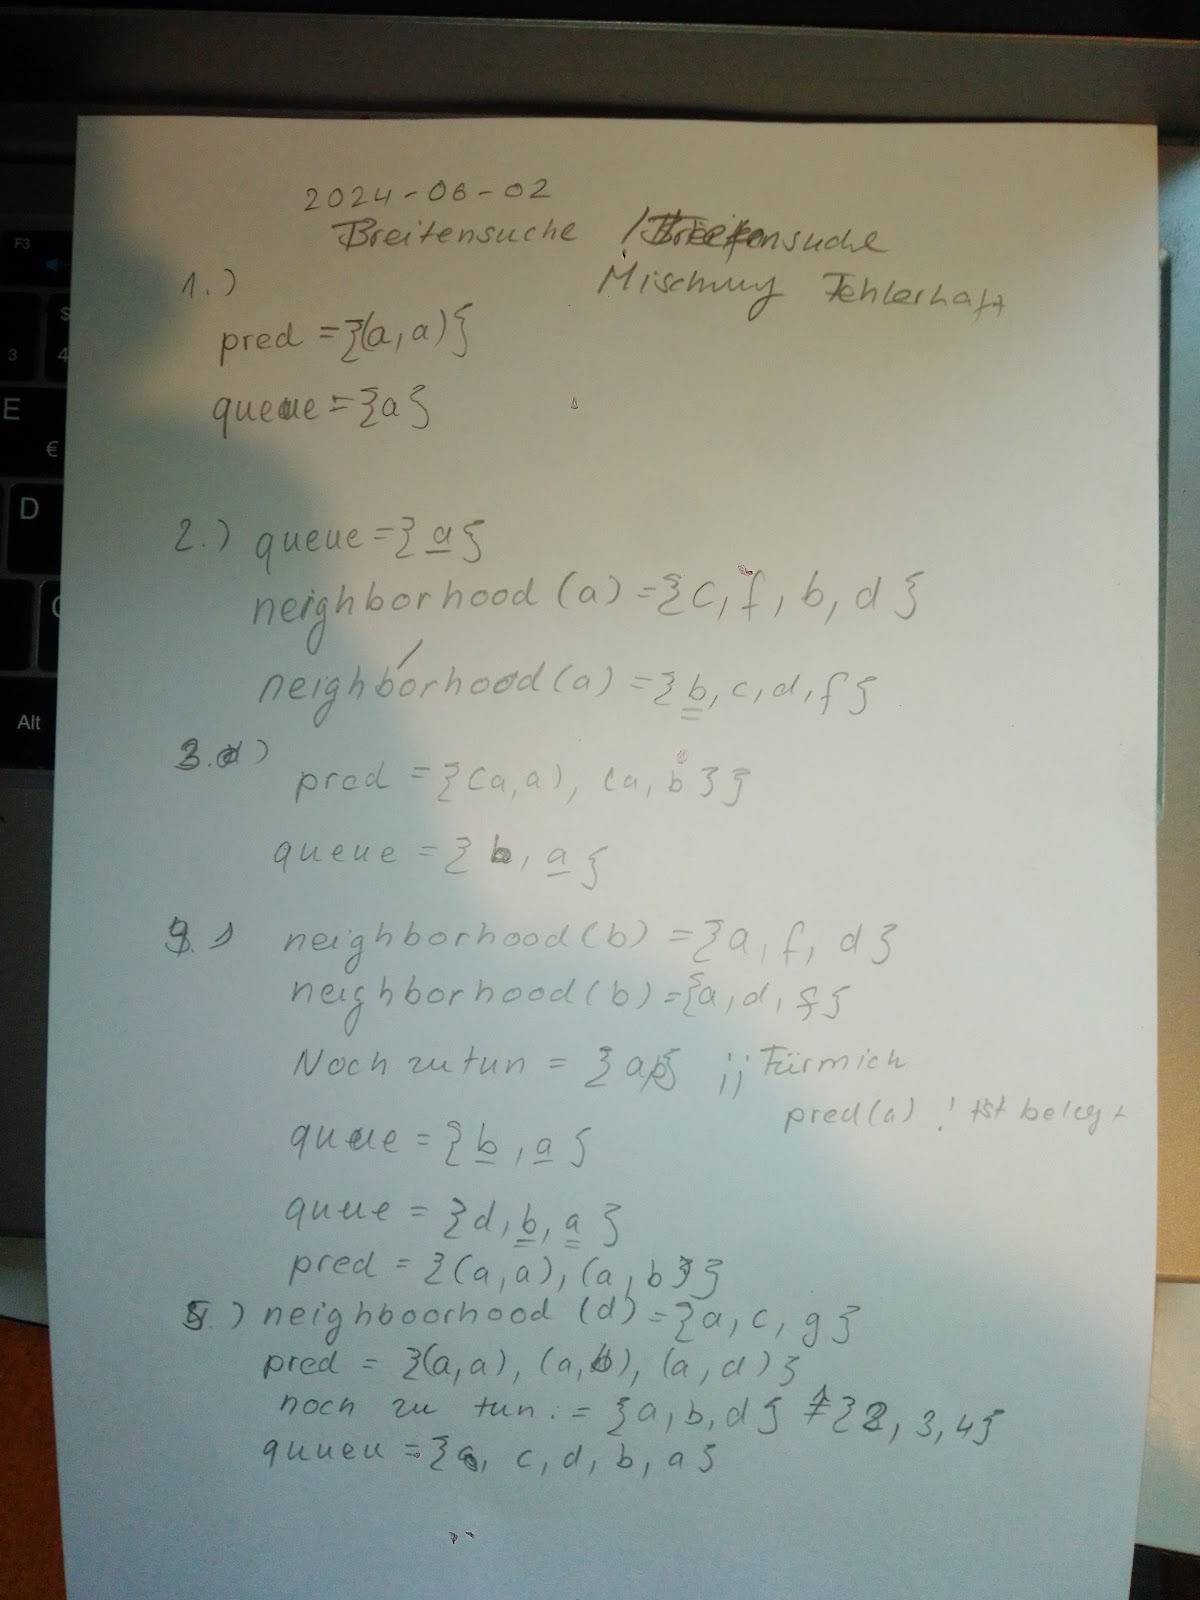 2024-06-02
Breitensuche / Tiefensuche
Mischung Fehlerhaft
1.)
pred = {(a, a)}
queue = {a}
2.) queue = {a}
neighborhood (a) = {c, f, b, d}
neighborhood (a) = {b, c, d, f}
3.)
pred = {(a, a), (a, b}}
queue = {b, a}
4.) neighborhood (b) = {a, f, d}
neighborhood (b) = {a, d, f}
Noch zu tun = {a} ;; Für mich
pred(a) ! ist belegt
queue = {b, a}
queue = {d, b, a}
pred = {(a, a), (a, b}}
5.) neighboorhood (d) = {a, c, g}
pred = {(a, a), (a, b), (a, d)}
noch zu tun := {a, b, d} ≠ {2, 3, 4}
ququeu = { , c, d, b, a}
F3
$
3
4
E
€
D
Alt